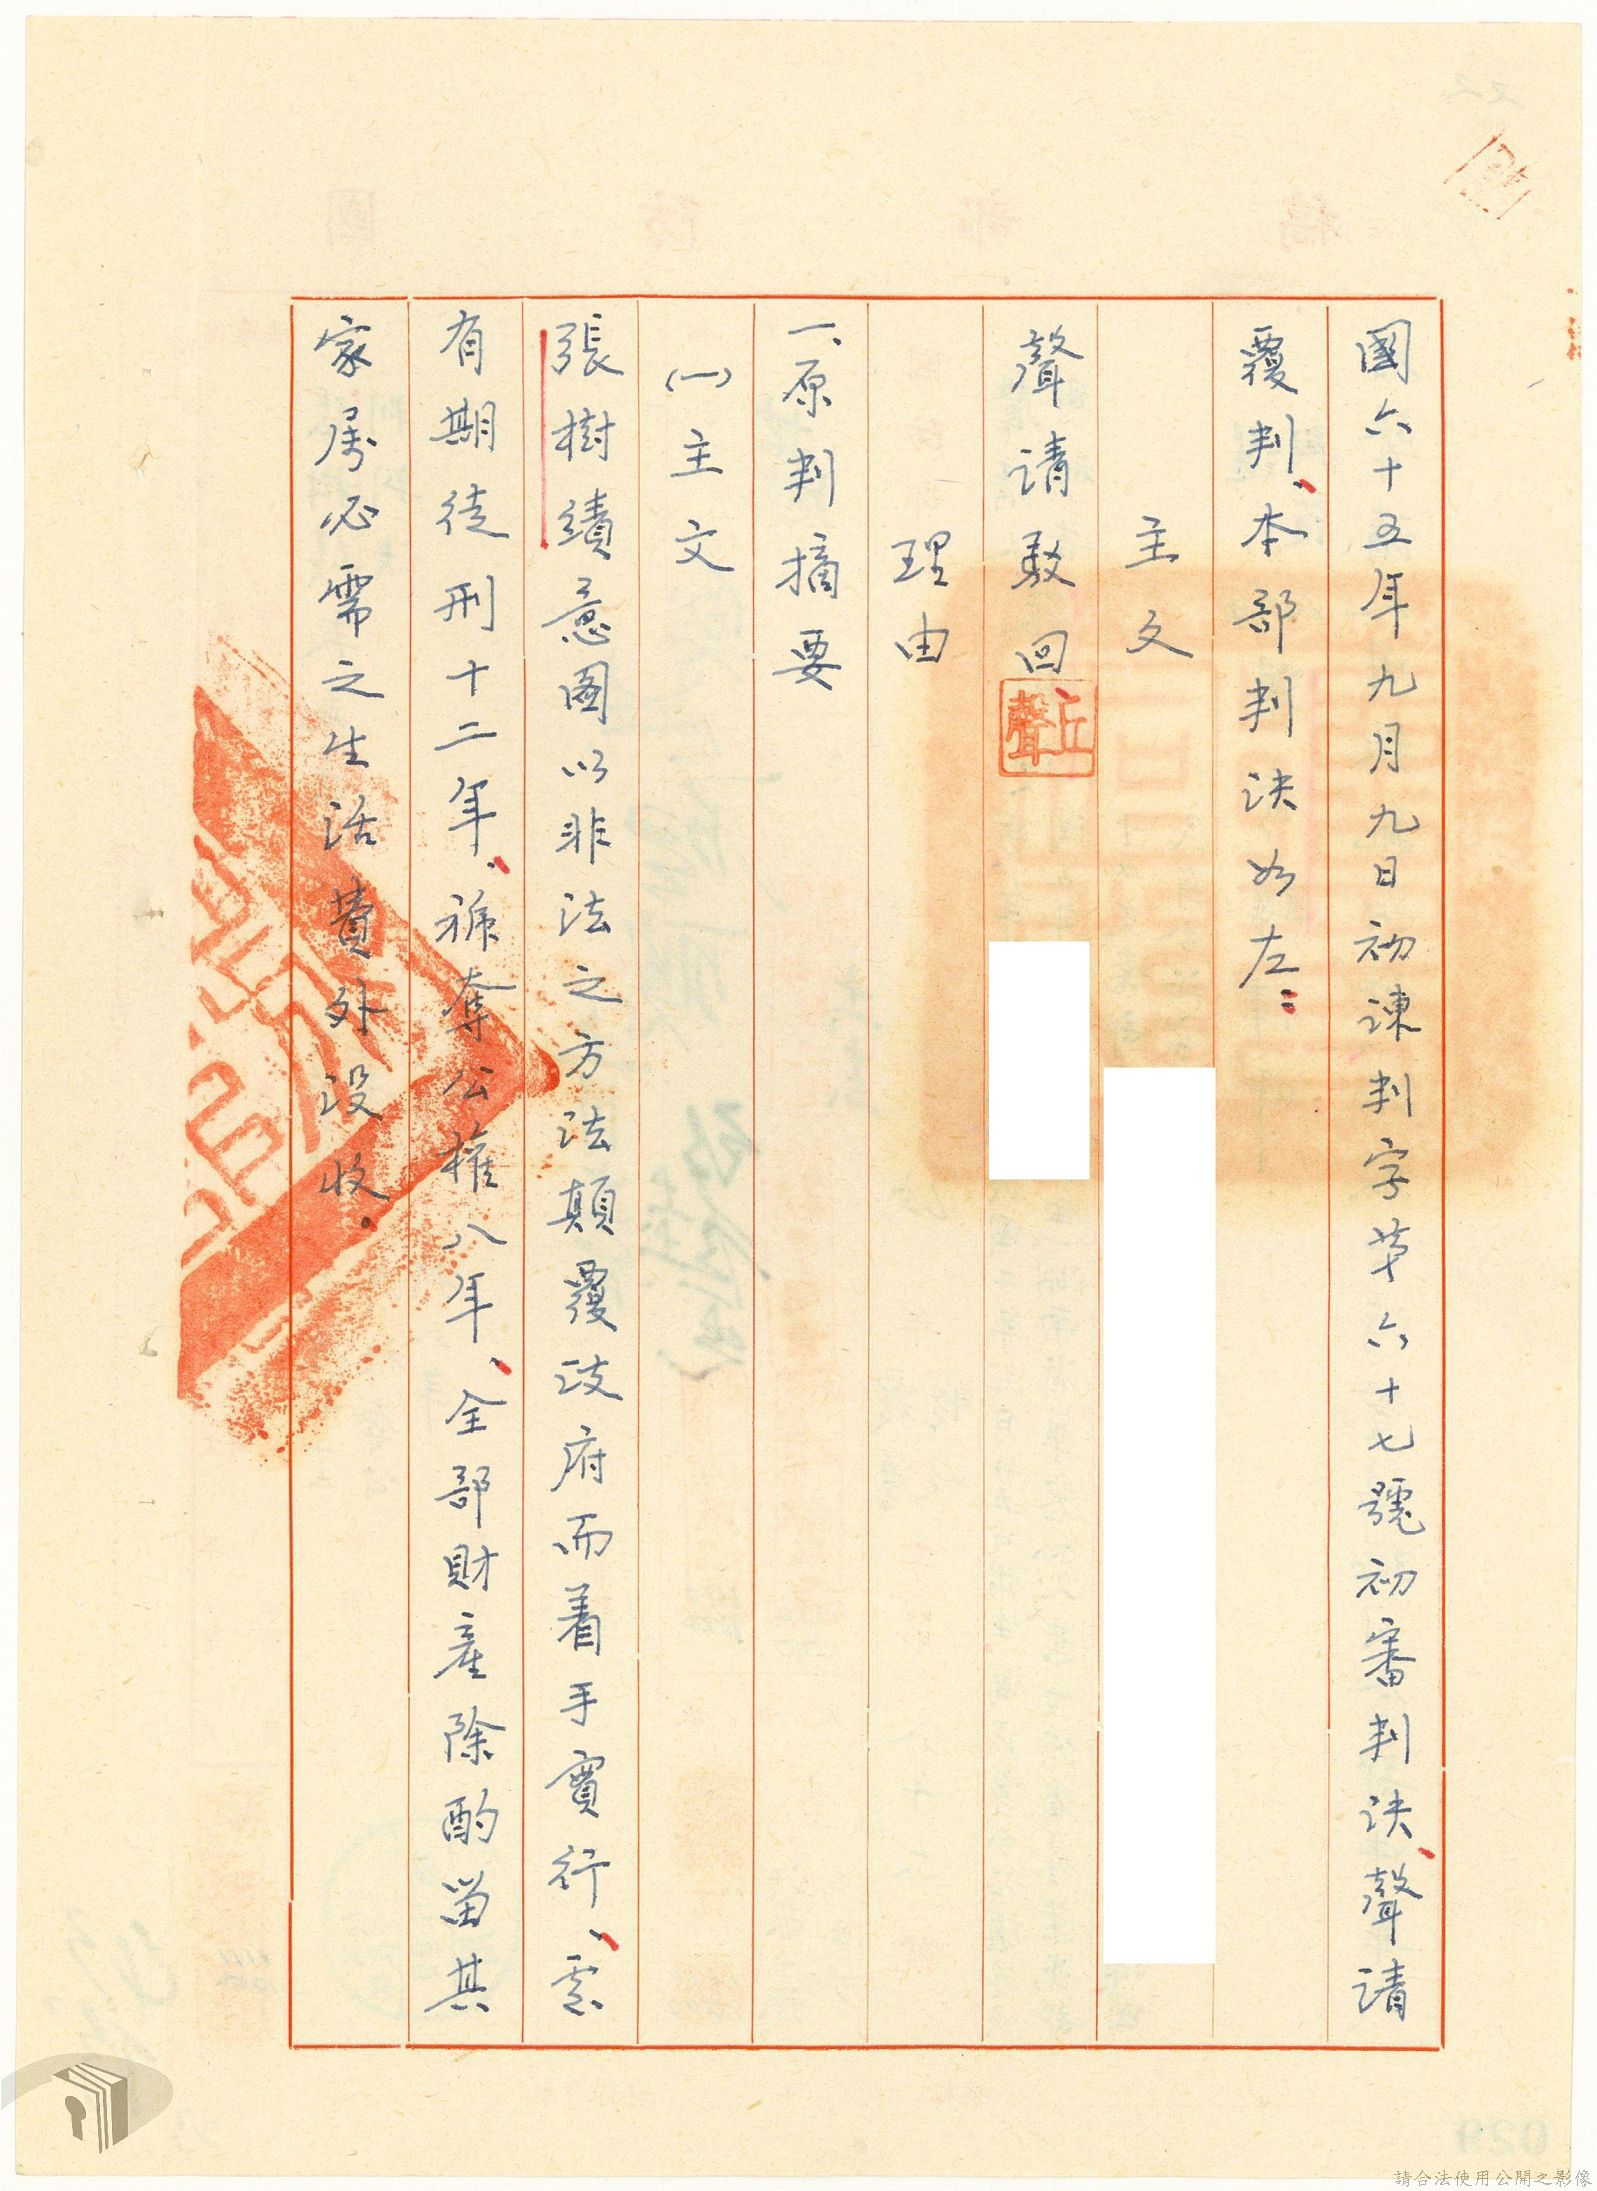 國六十五年九月九日初諫判字第六十七號初審判決、聲請
覆判、本部判決如左：
主文
聲請駁回
丘聲
理由
一、原判摘要
(一)主文
張樹績意圖以非法之方法顛覆政府而着手實行、處
有期徒刑十二年、褫奪公權八年、全部財產除酌留其
家屬必需之生活費外沒收。
請合法使用公開之影像